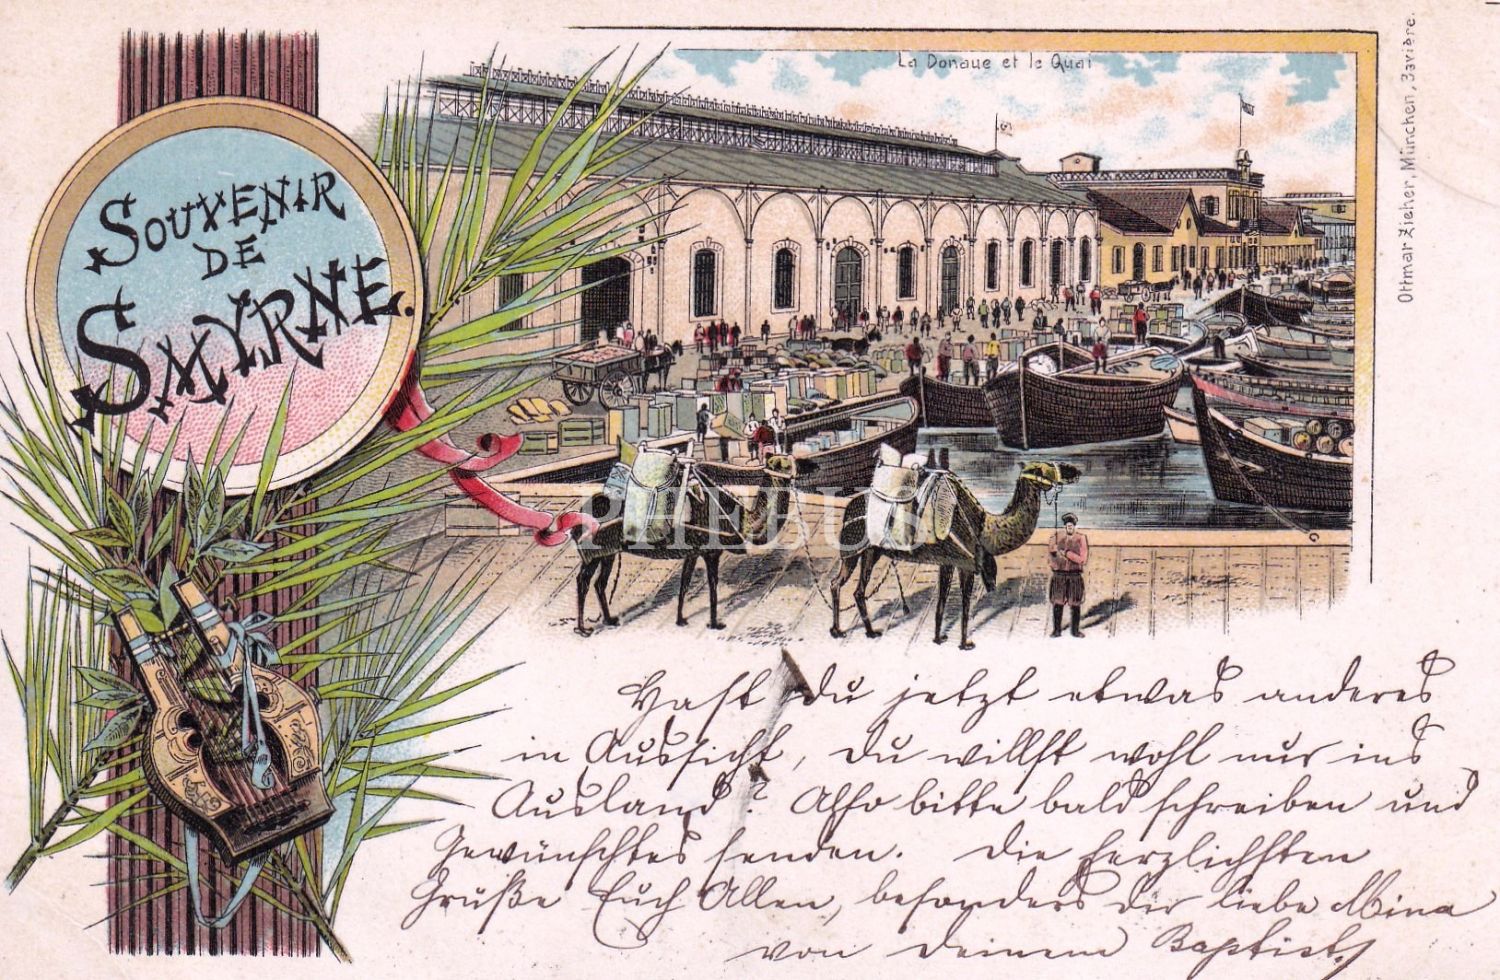 SOUVENIR
DE
SMYRNE.
La Donaue et le Quai
Ottmar Zieher, München, Bavière.
PHEBUS
Hast Du jetzt etwas anderes
in Aussicht, Du willst wohl nur ins
Ausland? Also bitte bald schreiben und
Gewünschtes senden. Die herzlichsten
Grüße Euch Allen, besonders Dir liebe Mina
von Deinem Baptist